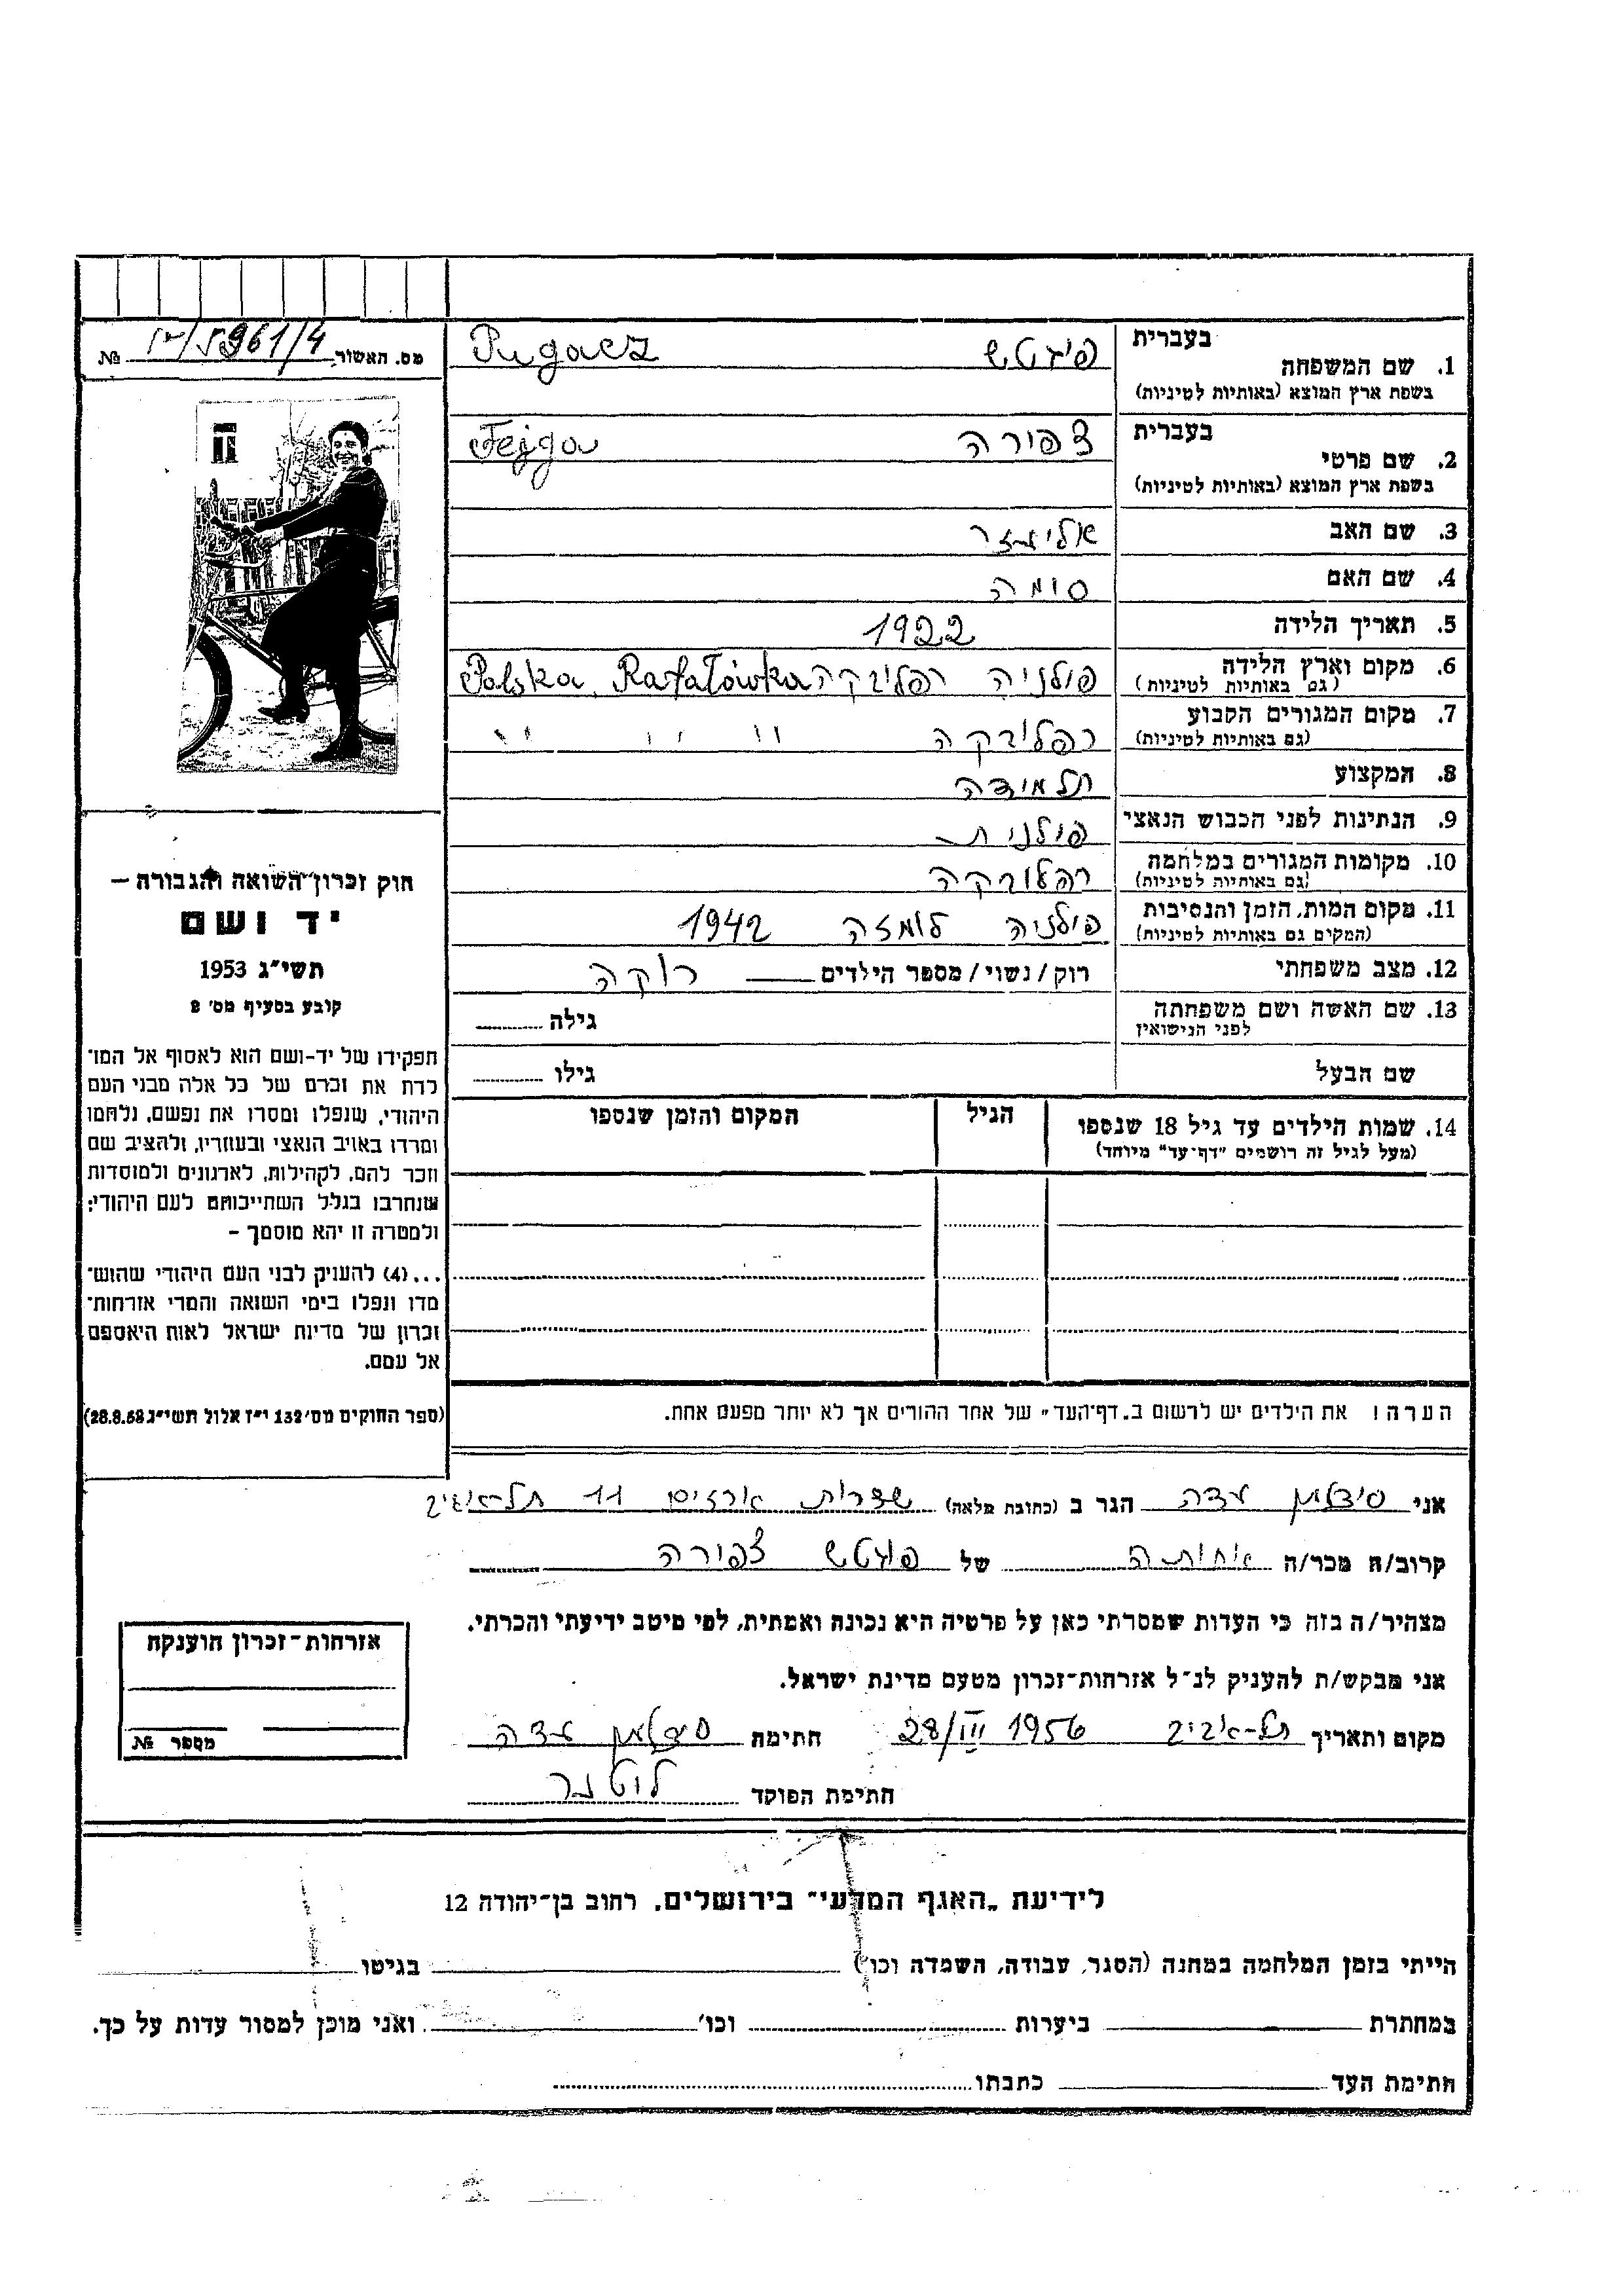 מס. האשור 961/4 №
בעברית
1. שם המשפחה
בשפת ארץ המוצא (באותיות לטיניות)
פוגטש Pugacz
בעברית
2. שם פרטי
בשפת ארץ המוצא (באותיות לטיניות)
צפורה Fejga
3. שם האב אליעזר
4. שם האם סומה
5. תאריך הלידה 1922
6. מקום וארץ הלידה
(גם באותיות לטיניות)
פולניה רפליבקה Polska, Rafałówka
7. מקום המגורים הקבוע
(גם באותיות לטיניות)
רפליבקה " " "
8. המקצוע תלמידה
9. הנתינות לפני הכבוש הנאצי פולנית
10. מקומות המגורים במלחמה
(גם באותיות לטיניות)
רפלובקה
11. מקום המות, הזמן והנסיבות
(המקום גם באותיות לטיניות)
פולניה לומזה 1942
12. מצב משפחתי רוק/נשוי/מספר הילדים רוקה
13. שם האשה ושם משפחתה
לפני הנישואין
גילה
שם הבעל גילו
14. שמות הילדים עד גיל 18 שנספו
(מעל לגיל זה רושמים "דף־עד" מיוחד)
הגיל
המקום והזמן שנספו
הערה: את הילדים יש לרשום ב„דף־העד" של אחד ההורים אך לא יותר מפעם אחת.
חוק זכרון השואה והגבורה –
יד ושם
תשי"ג 1953
קובע בסעיף מס' 2
תפקידו של יד-ושם הוא לאסוף אל המו־
לדת את זכרם של כל אלה מבני העם
היהודי, שנפלו ומסרו את נפשם, נלחמו
ומרדו באויב הנאצי ובעוזריו, ולהציב שם
וזכר להם, לקהילות, לארגונים ולמוסדות
שנחרבו בגלל השתייכותם לעם היהודי;
ולמטרה זו יהא מוסמך –
...(4) להעניק לבני העם היהודי שהוש־
מדו ונפלו בימי השואה והמרי אזרחות־
זכרון של מדינת ישראל לאות היאספם
אל עמם.
(ספר החוקים מס' 132 י"ז אלול תשי"ג 28.8.53)
אני עדה הגר ב (כתובת מלאה) שדרות ארזים 11 תל-אביב
קרוב/ה מכר/ה אחותה של פוגטש צפורה
מצהיר/ה בזה כי העדות שמסרתי כאן על פרטיה היא נכונה ואמתית, לפי מיטב ידיעתי והכרתי.
אני מבקש/ת להעניק לנ"ל אזרחות־זכרון מטעם מדינת ישראל.
מקום ותאריך תל-אביב 28/III 1956 חתימה עדה
חתימת הפוקד
אזרחות־זכרון הוענקה
מספר №
לידיעת „האגף המדעי" בירושלים, רחוב בן־יהודה 12
הייתי בזמן המלחמה במחנה (הסגר, עבודה, השמדה וכו') בגיטו
במחתרת ביערות וכו' ואני מוכן למסור עדות על כך.
חתימת העד כתבתו